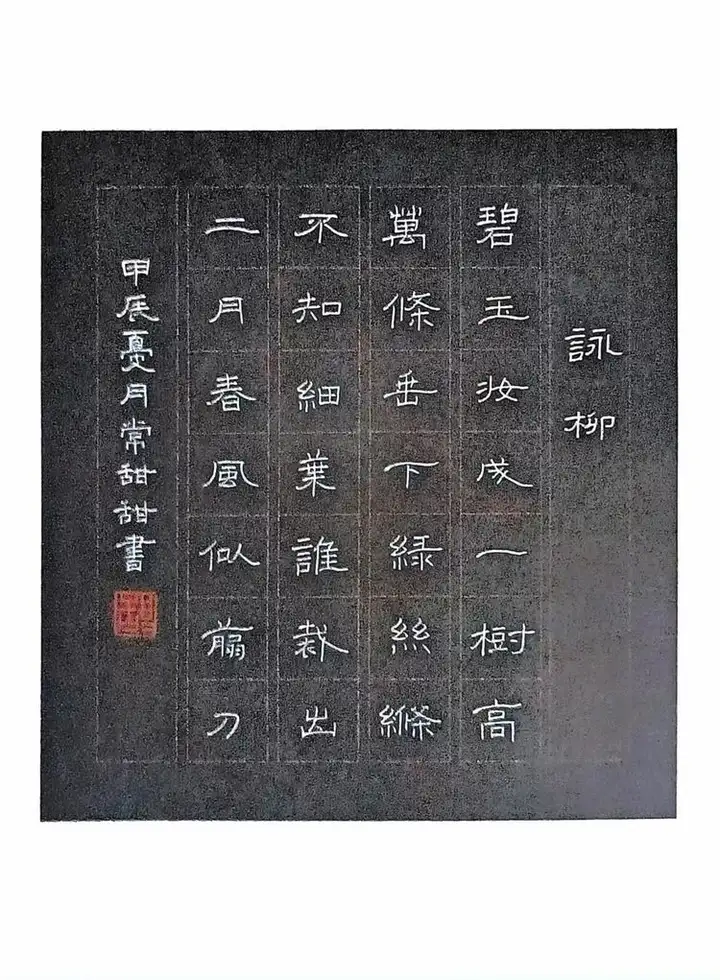 詠柳
碧玉妆成一樹高
萬條垂下緑絲縧
不知細葉誰裁出
二月春風似翦刀
甲辰夏月常甜甜書